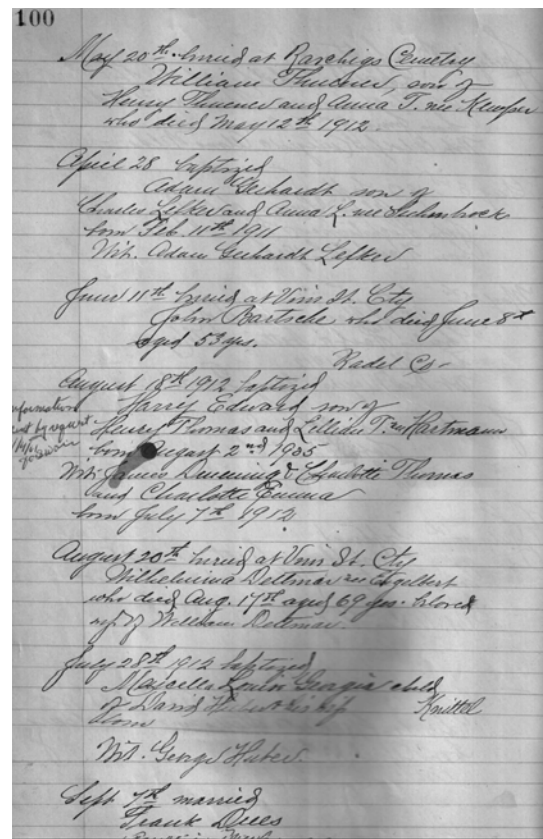 100
May 20th buried at Raschigs Cemetry
William Thuener, son of
Henry Thuener and Anna T. nee
who died May 12th 1912
April 28 baptized
Adam Gerhardt son of
Charles Lefker and Anna L. nee
born Feb. 11th 1911
Wit. Adam Gerhardt Lefker
June 11th buried at Vine St. Cty
John Bartsche who died June 8th
aged 53 yrs.
Radel Co-
August 18th 1912 baptized
Harry Edward son of
Henry Thomas and Lillian T. nee Hartmann
born August 2nd 1905
information
sent by request
Wit. Duening & Charlotte Thomas
and Charlotte Emma
born July 7th 1912
August 20th buried at Vine St. Cty
Wilhelmina Dettmar nee Engelbert
who died Aug. 17th aged 69 yrs. beloved
of William Dettmar.
July 28th 1912 baptized
Marcella Georgia child
of David Knittel
born
Wit. George Huber
Sept 7th married
Frank Dues